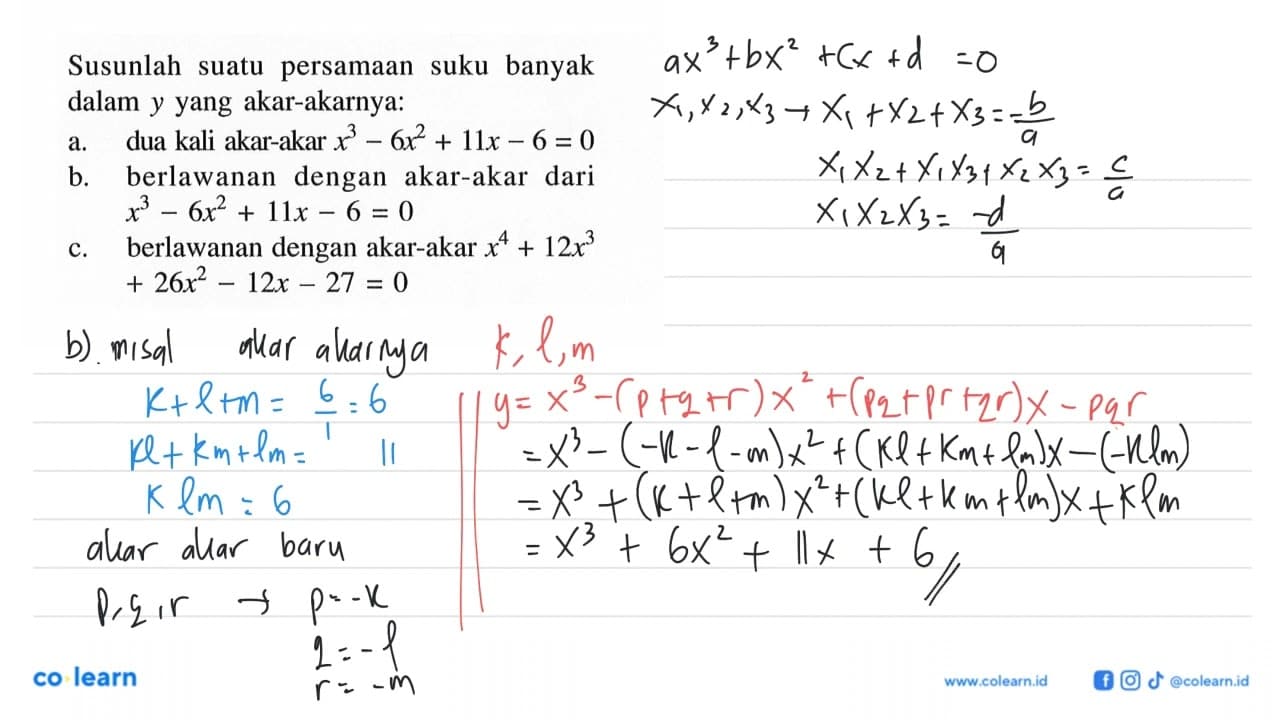 Susunlah suatu persamaan suku banyak
dalam y yang akar-akarnya:
a. dua kali akar-akar x³ – 6x² + 11x – 6 = 0
b. berlawanan dengan akar-akar dari
x³ – 6x² + 11x – 6 = 0
c. berlawanan dengan akar-akar x⁴ + 12x³
+ 26x² – 12x – 27 = 0
ax³+bx²+cx+d =0
x₁,x₂,x₃→x₁+x₂+x₃=-b/a
x₁x₂+x₁x₃+x₂x₃=c/a
x₁x₂x₃=-d/a
b). misal akar akarnya k,l,m
k+l+m=6/1=6
kl+km+lm=11
klm=6
akar akar baru
p,q,r → p=-k
q=-l
r=-m
y=x³-(p+q+r)x²+(pq+pr+qr)x-pqr
=x³-(-k-l-m)x²+(kl+km+lm)x-(-klm)
=x³+(k+l+m)x²+(kl+km+lm)x+klm
=x³+6x²+11x+6
co learn
www.colearn.id
@colearn.id